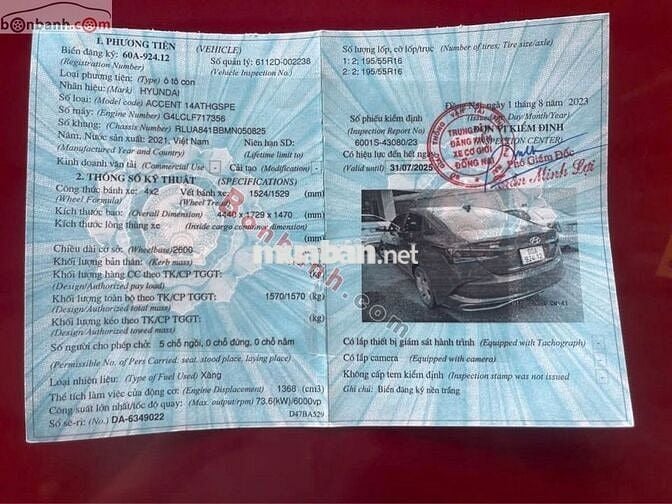 bonbanh.com
I. PHƯƠNG TIỆN (VEHICLE)
Biển đăng ký: 60A-924.12 Số quản lý: 6112D-002238
(Registration Number) (Vehicle Inspection No.)
Loại phương tiện: (Type) ô tô con
Nhãn hiệu: (Mark) HYUNDAI
Số loại: (Model code) ACCENT 14ATHGSPE
Số máy: (Engine Number) G4LCLF717356
Số khung: (Chassis Number) RLUA841BBMN050825
Năm, Nước sản xuất: 2021, Việt Nam Niên hạn SD:
(Manufactured Year and Country) (Lifetime limit to)
Kinh doanh vận tải (Commercial Use) Cải tạo (Modification)
2. THÔNG SỐ KỸ THUẬT (SPECIFICATIONS)
Công thức bánh xe: 4x2 Vết bánh xe: 1524/1529 (mm)
(Wheel Formula) (Wheel Tread)
Kích thước bao: (Overall Dimension) 4440 x 1729 x 1470 (mm)
Kích thước lòng thùng xe (mm)
(Inside cargo container dimension)
Chiều dài cơ sở: (Wheelbase) 2600
Khối lượng bản thân: (Kerb mass)
Khối lượng hàng CC theo TK/CP TGGT:
(Design/Authorized pay load)
Khối lượng toàn bộ theo TK/CP TGGT: 1570/1570 (kg)
(Design/Authorized total mass)
Khối lượng kéo theo TK/CP TGGT: (kg)
(Design/Authorized towed mass)
Số người cho phép chở: 5 chỗ ngồi, 0 chỗ đứng, 0 chỗ nằm
(Permissible No. of Pers Carried: seat, stood place, laying place)
Loại nhiên liệu: (Type of Fuel Used) Xăng
Thể tích làm việc của động cơ: (Engine Displacement) 1368 (cm3)
Công suất lớn nhất/tốc độ quay: (Max. output/rpm) 73.6(kW)/6000vp
Số sê-ri: (No.) DA-6349022 D47BA529
Số lượng lốp, cỡ lốp/trục (Number of tires; Tire size/axle)
1: 2; 195/55R16
2: 2; 195/55R16
Đồng Nai, ngày 1 tháng 8 năm 2023
(Issued on: Day/Month/Year)
Số phiếu kiểm định
(Inspection Report No)
6001S-43080/23
ĐƠN VỊ KIỂM ĐỊNH
(INSPECTION CENTER)
Có hiệu lực đến hết ngày
(Valid until) 31/07/2025
TRUNG TÂM
ĐĂNG KIỂM
XE CƠ GIỚI
ĐỒNG NAI
Phó Giám Đốc
Trần Minh Lợi
muaban.net
Bonbanh.com
Có lắp thiết bị giám sát hành trình (Equipped with Tachograph)
Có lắp camera (Equipped with camera)
Không cấp tem kiểm định (Inspection stamp was not issued)
Ghi chú: Biển đăng ký nền trắng